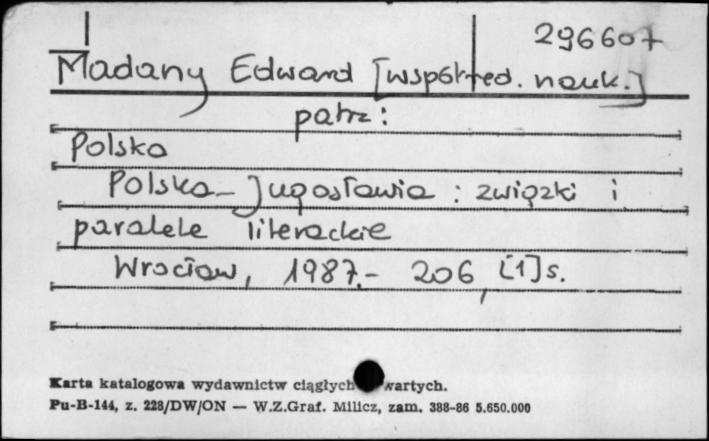 296607
Madany Edward [współred. nauk.]
patrz:
Polska
Polska - Jugosławia : związki i
paralele literackie
Wrocław, 1987.- 206, [1] s.
Karta katalogowa wydawnictw ciągłych wartych.
Pu-B-144, z. 228/DW/ON — W.Z.Graf. Milicz, zam. 388-86 5.650.000